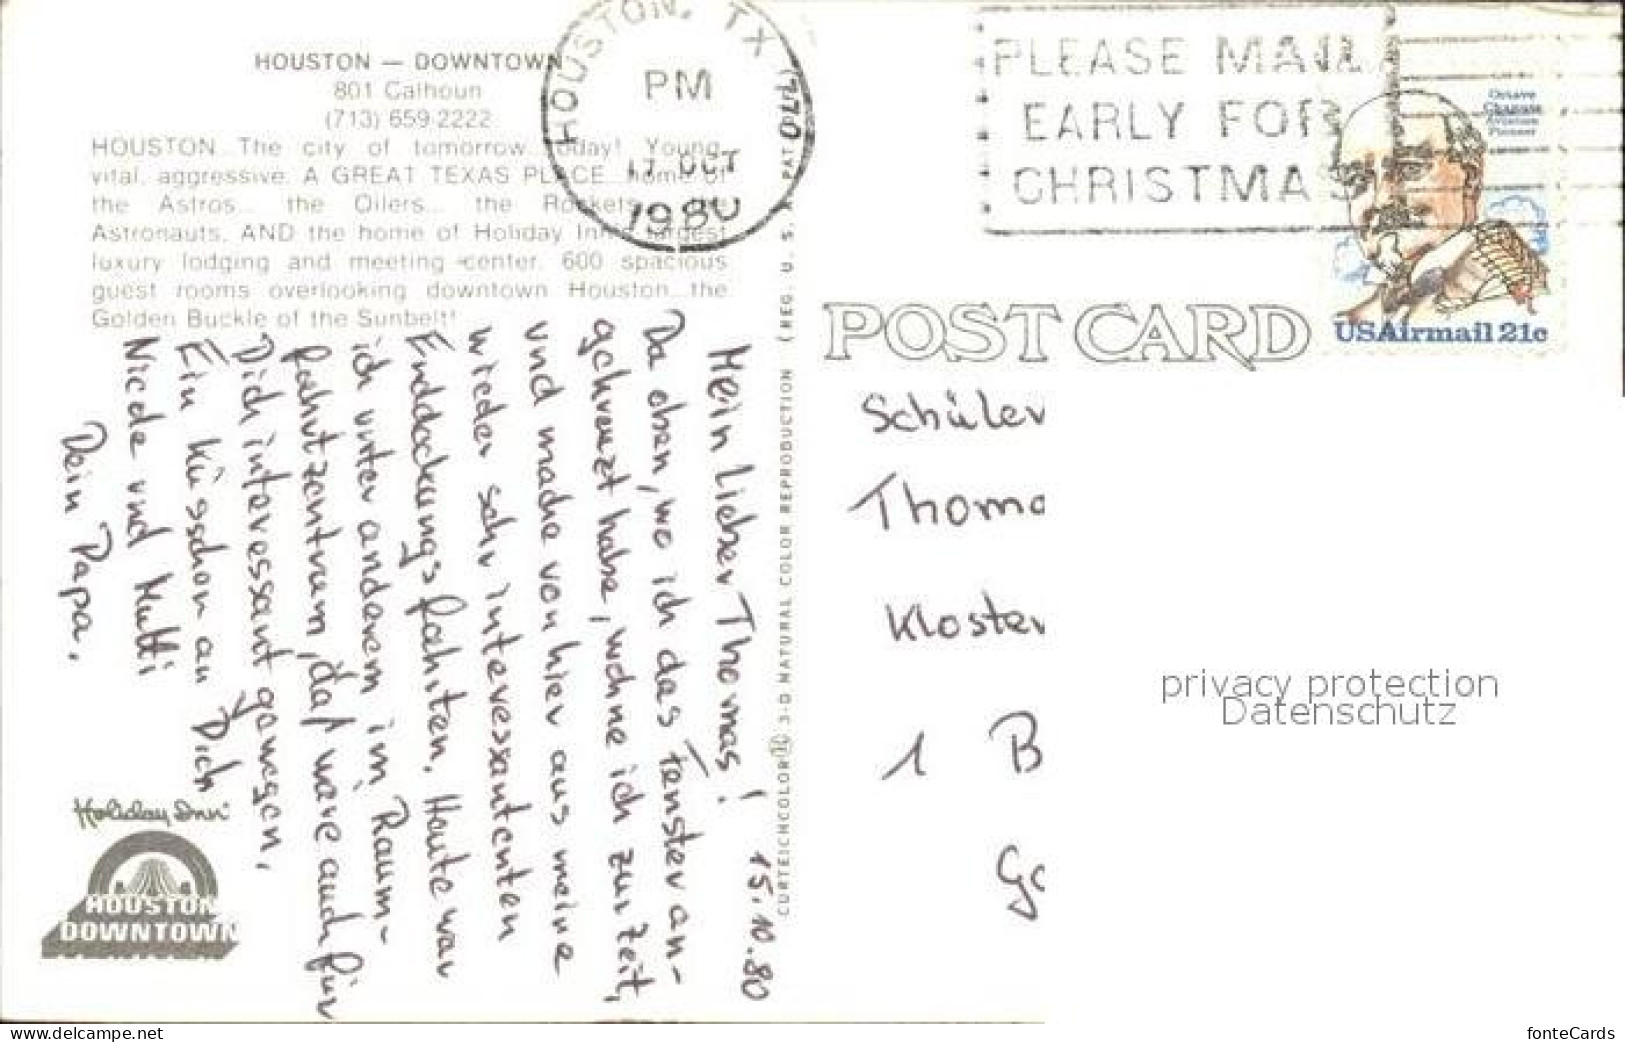 HOUSTON — DOWNTOWN
801 Calhoun
(713) 659-2222
HOUSTON...The city of tomorrow...today! Young,
vital, aggressive. A GREAT TEXAS PLACE...home of
the Astros... the Oilers... the Rockets...
Astronauts, AND the home of Holiday Inn's largest
luxury lodging and meeting center. 600 spacious
guest rooms overlooking downtown Houston...the
Golden Buckle of the Sunbelt!
HOUSTON, TX
PM
17 OCT
1980
PLEASE MAIL
EARLY FOR
CHRISTMAS
Octave
Chanute
Aviation
Pioneer
USAirmail 21c
POST CARD
CURTEICHCOLOR® 3-D NATURAL COLOR REPRODUCTION (REG. U. S. A. PAT. OFF.)
15.10.80
Mein lieber Thomas!
Da oben, wo ich das Fenster an-
gekreuzt habe, wohne ich zur Zeit,
und mache von hier aus meine
wieder sehr interessantenten
Enddeckungsfahrten. Heute war
ich unter anderem im Raum-
fahrtzentrum, daß wäre auch für
Dich interessant gewesen,
Ein Küsschen an Dich
Nicole und Mutti
Dein Papa.
Schüler
Thoma
Kloster
1 B
Holiday Inn®
HOUSTON
DOWNTOWN
privacy protection
Datenschutz
www.delcampe.net
fonteCards